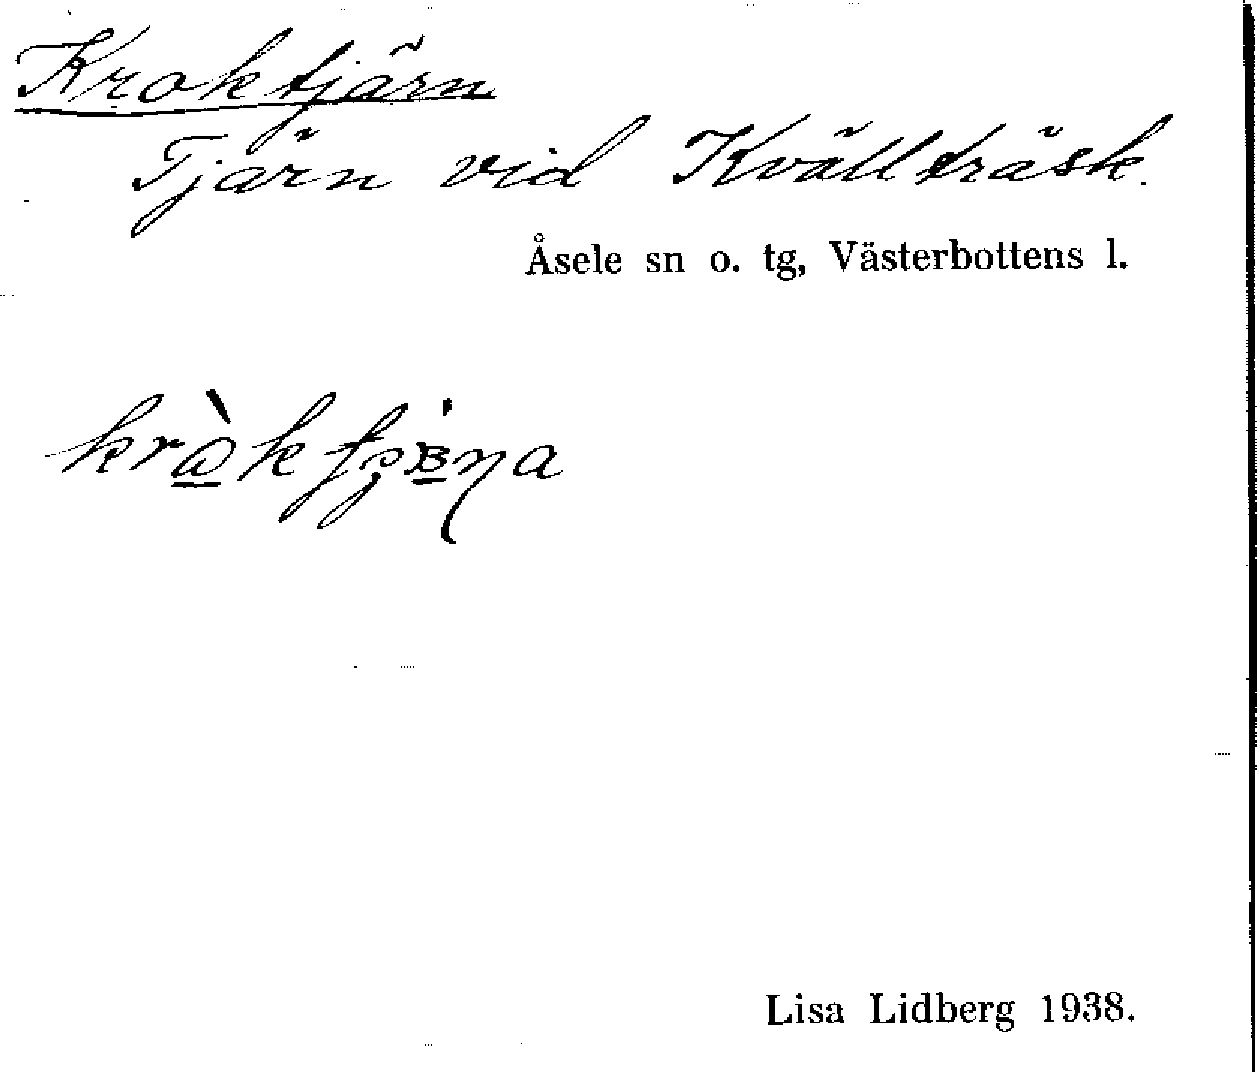 Kroktjärn
Tjärn vid Kvällträsk.
Åsele sn o. tg, Västerbottens l.
Lisa Lidberg 1938.